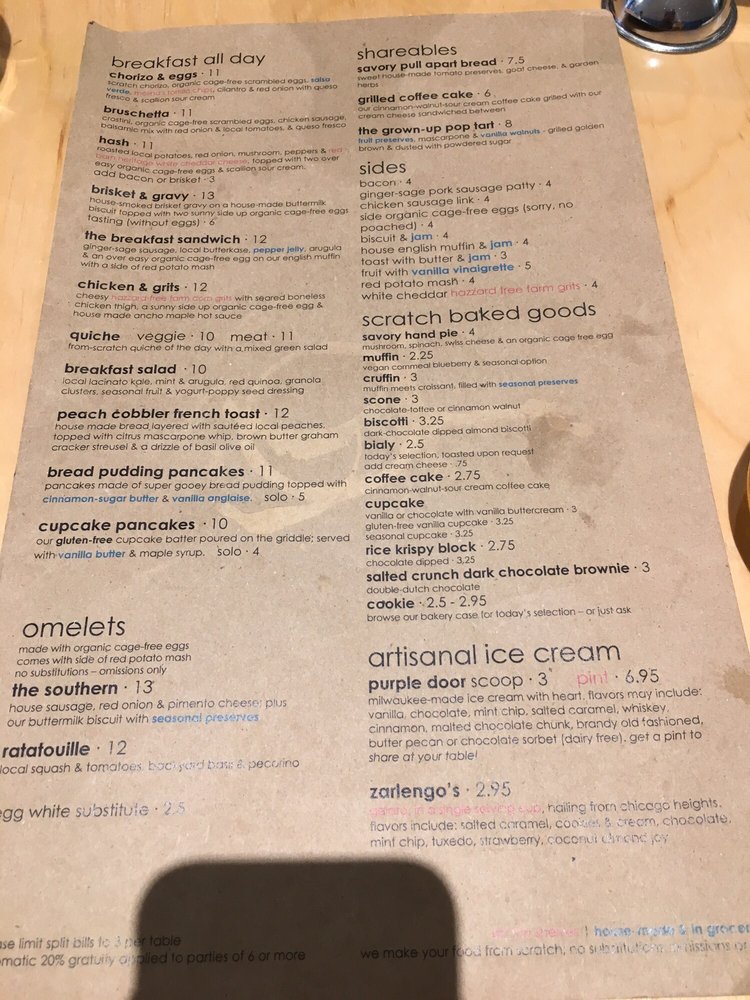 breakfast all day
chorizo & eggs · 11
scratch chorizo, organic cage-free scrambled eggs, salsa
verde, tortilla chips, cilantro & red onion with queso
fresco & scallion sour cream
bruschetta · 11
crostini, organic cage-free scrambled eggs, chicken sausage,
balsamic mix with red onion & local tomatoes, & queso fresco
hash · 11
roasted local potatoes, red onion, mushroom, peppers & red
barn heritage white cheddar cheese, topped with two over
easy organic cage-free eggs & scallion sour cream.
add bacon or brisket · 3
brisket & gravy · 13
house-smoked brisket gravy on a house-made buttermilk
biscuit topped with two sunny side up organic cage-free eggs
tasting (without eggs) · 6
the breakfast sandwich · 12
ginger-sage sausage, local butterkase, pepper jelly, arugula
& an over easy organic cage-free egg on our english muffin
with a side of red potato mash
chicken & grits · 12
cheesy hazzard free farm corn grits with seared boneless
chicken thigh, a sunny side up organic cage-free egg &
house made ancho maple hot sauce
quiche veggie · 10 meat · 11
from-scratch quiche of the day with a mixed green salad
breakfast salad · 10
local lacinato kale, mint & arugula, red quinoa, granola
clusters, seasonal fruit & yogurt-poppy seed dressing
peach cobbler french toast · 12
house made bread layered with sautéed local peaches,
topped with citrus mascarpone whip, brown butter graham
cracker streusel & a drizzle of basil olive oil
bread pudding pancakes · 11
pancakes made of super gooey bread pudding topped with
cinnamon-sugar butter & vanilla anglaise. solo · 5
cupcake pancakes · 10
our gluten-free cupcake batter poured on the griddle; served
with vanilla butter & maple syrup. solo · 4
omelets
made with organic cage-free eggs
comes with side of red potato mash
no substitutions – omissions only
the southern · 13
house sausage, red onion & pimento cheese; plus
our buttermilk biscuit with seasonal preserves
ratatouille · 12
local squash & tomatoes, backyard basil & pecorino
egg white substitute · 2.5
shareables
savory pull apart bread · 7.5
sweet house-made tomato preserves, goat cheese, & garden
herbs
grilled coffee cake · 6
our cinnamon-walnut-sour cream coffee cake grilled with our
cream cheese sandwiched between
the grown-up pop tart · 8
fruit preserves, mascarpone & vanilla walnuts - grilled golden
brown & dusted with powdered sugar
sides
bacon · 4
ginger-sage pork sausage patty · 4
chicken sausage link · 4
side organic cage-free eggs (sorry, no
poached) · 4
biscuit & jam · 4
house english muffin & jam · 4
toast with butter & jam · 3
fruit with vanilla vinaigrette · 5
red potato mash · 4
white cheddar hazzard free farm grits · 4
scratch baked goods
savory hand pie · 4
mushroom, spinach, swiss cheese & an organic cage free egg
muffin · 2.25
vegan cornmeal blueberry & seasonal option
cruffin · 3
muffin meets croissant, filled with seasonal preserves
scone · 3
chocolate-toffee or cinnamon walnut
biscotti · 3.25
dark-chocolate dipped almond biscotti
bialy · 2.5
today's selection, toasted upon request
add cream cheese · .75
coffee cake · 2.75
cinnamon-walnut-sour cream coffee cake
cupcake
vanilla or chocolate with vanilla buttercream · 3
gluten-free vanilla cupcake · 3.25
seasonal cupcake · 3.25
rice krispy block · 2.75
chocolate dipped · 3.25
salted crunch dark chocolate brownie · 3
double-dutch chocolate
cookie · 2.5 - 2.95
browse our bakery case for today's selection – or just ask
artisanal ice cream
purple door scoop · 3 pint · 6.95
milwaukee-made ice cream with heart. flavors may include:
vanilla, chocolate, mint chip, salted caramel, whiskey,
cinnamon, malted chocolate chunk, brandy old fashioned,
butter pecan or chocolate sorbet (dairy free). get a pint to
share at your table!
zarlengo's · 2.95
gelato, in a single serving cup, hailing from chicago heights.
flavors include: salted caramel, cookies & cream, chocolate,
mint chip, tuxedo, strawberry, coconut almond joy
se limit split bills to 3 per table
omatic 20% gratuity applied to parties of 6 or more
| house-made & in grocer
we make your food from scratch, no substitutions, omissions or